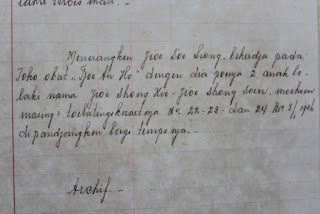 Menerangken Jioe Soe Siong, bekerdja pada
Toko obat „Tjoe An Ho" dengen dia poenja 2 anak le-
laki nama Jioe Shong Hie - Jioe Shong Soen, moehoen
masing2 toelatingskaartnja No. 22-23- dan 24
di pandjangken bagi temponja. -
Archif. -